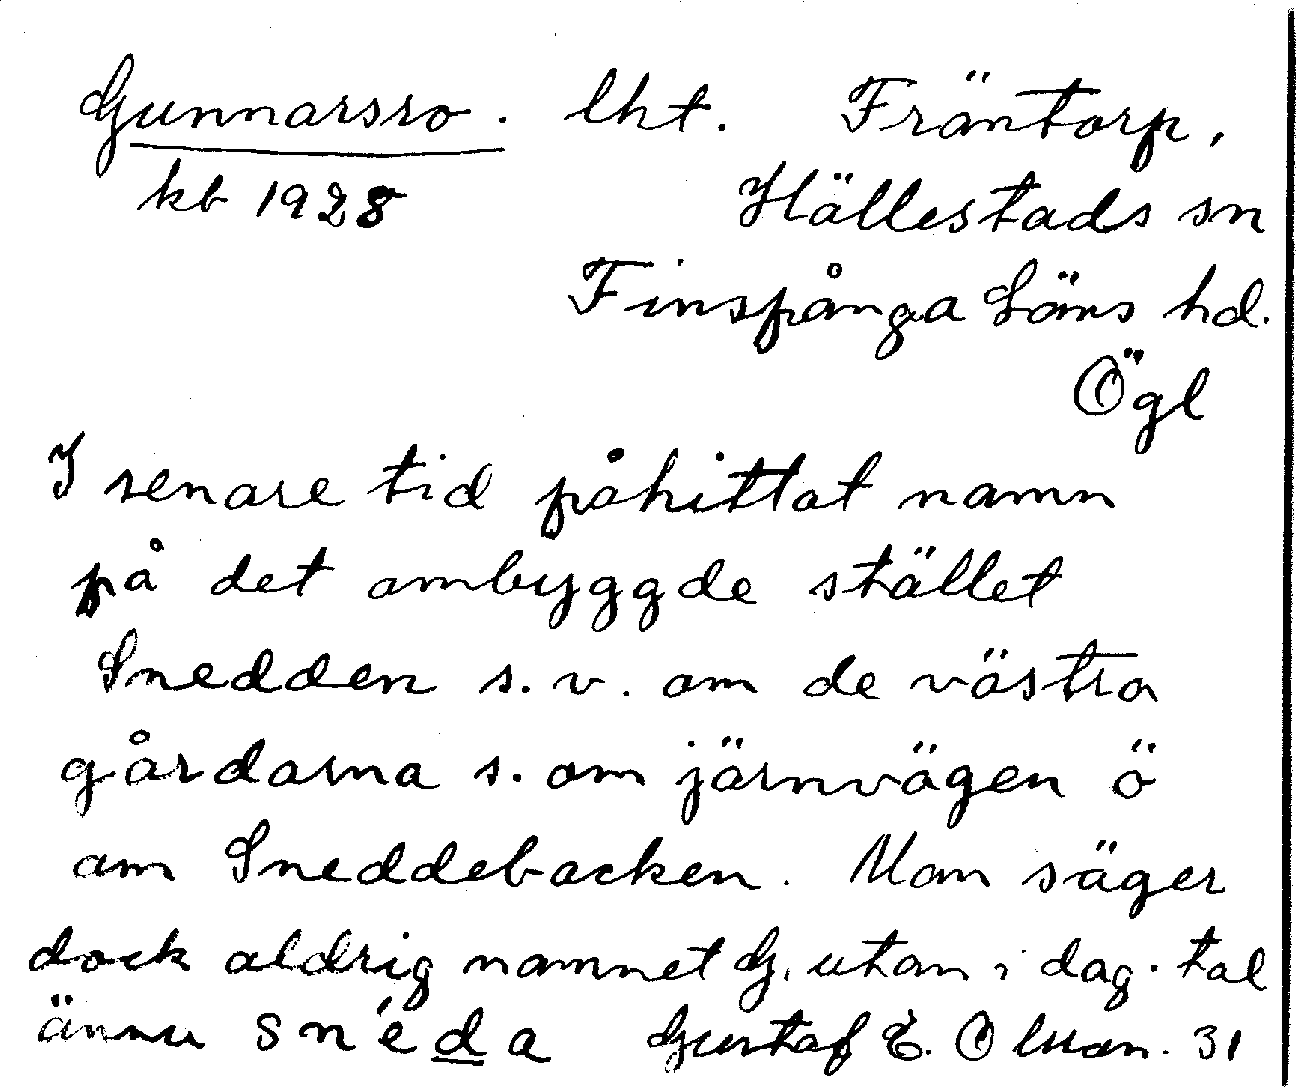 Gunnarsro. lht. Fräntorp,
kb 1928 Hällestads sn
Finspånga Läns hd.
Ögl
I senare tid påhittat namn
på det ombyggde stället
Snedden s.v. om de västra
gårdarna s. om järnvägen ö
om Sneddebacken. Man säger
dock aldrig namnet G. utan i dag. tal
ännu snéda Gustaf E. Olsson. 31